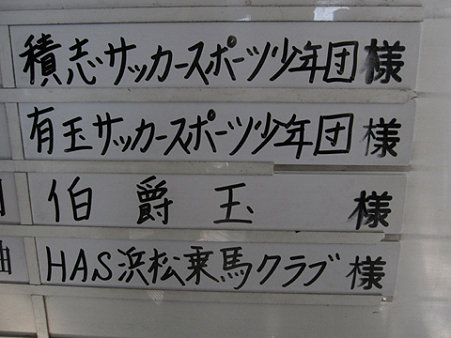 積志サッカースポーツ少年団 様
有玉サッカースポーツ少年団 様
伯爵玉 様
HAS浜松乗馬クラブ 様